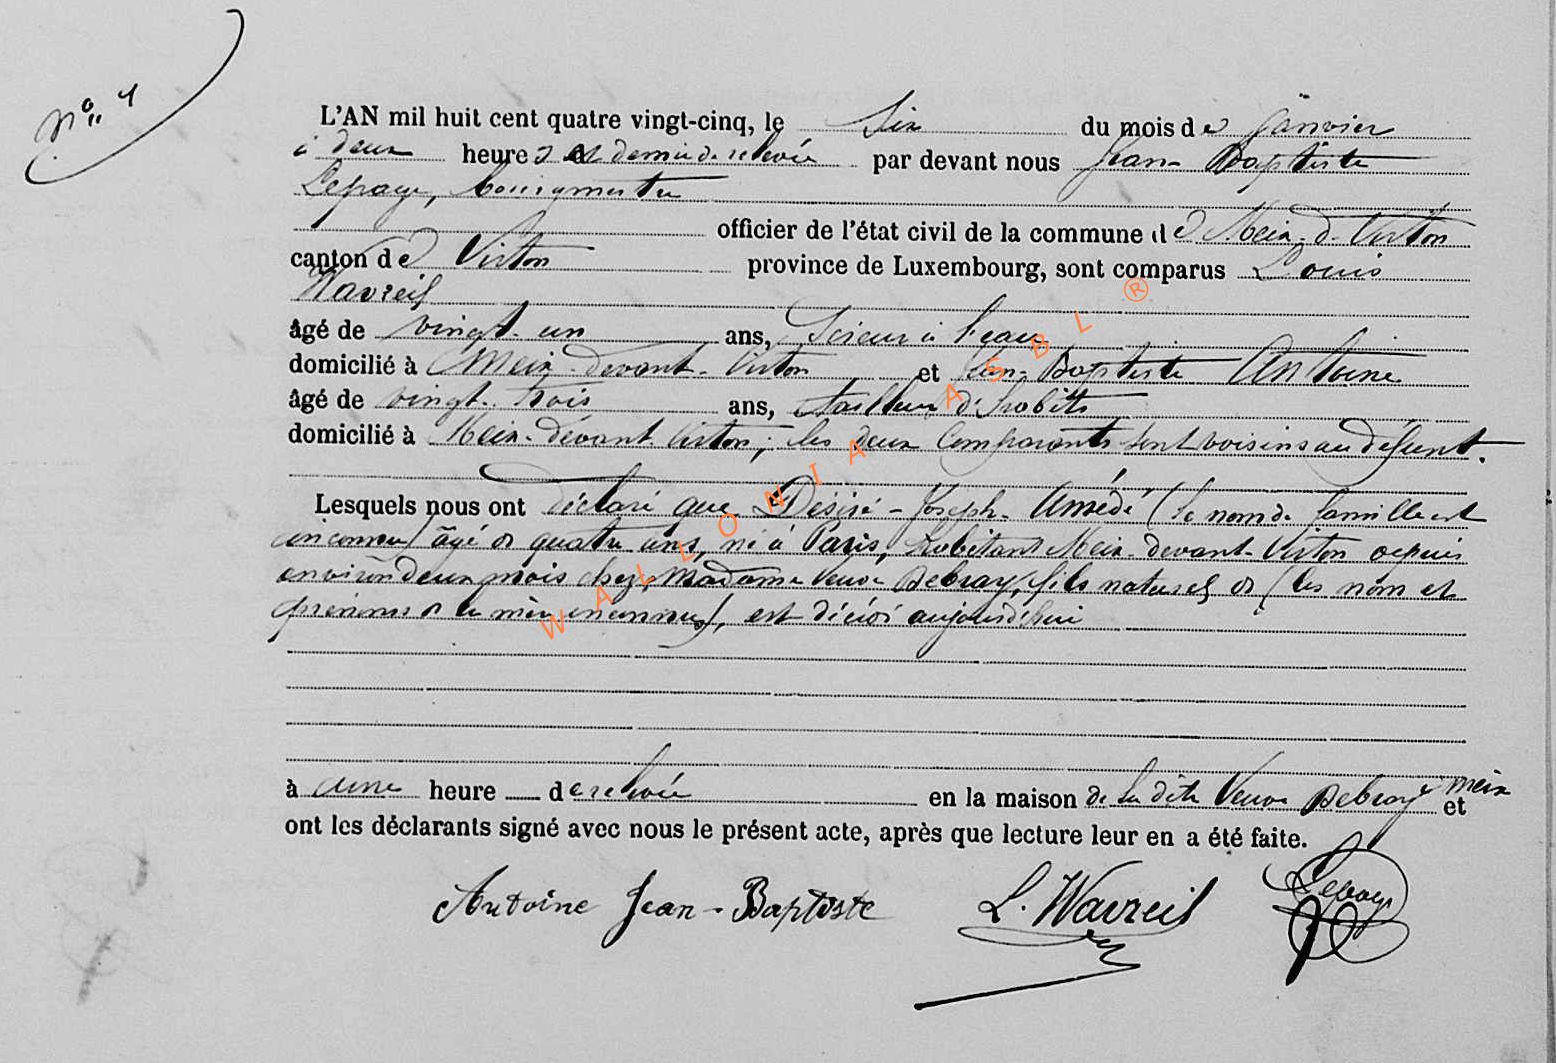 N° 1
L'AN mil huit cent quatre vingt-cinq, le Six du mois de Janvier
à deux heures et demie de relevée par devant nous Jean Baptiste
Lepage, bourgmestre
officier de l'état civil de la commune de Meix-d-Virton
canton de Virton province de Luxembourg, sont comparus Louis
Wavreil
âgé de vingt-un ans, Scieur à l'eau
domicilié à Meix-devant-Virton et Jean-Baptiste Antoine
âgé de vingt-trois ans, tailleur d'habits
domicilié à Meix-devant Virton, les deux comparants sont voisins au défunt.
Lesquels nous ont déclaré que Désiré-Joseph-Amédé (le nom de famille est
inconnu) âgé de quatre ans, né à Paris, habitant Meix-devant-Virton depuis
environ deux mois chez Madame Veuve Debray, fils naturel de (les nom et
prénoms de la mère inconnus), est décédé aujourd'hui
à une heure de relevée en la maison de la dite Veuve Debray à Meix et
ont les déclarants signé avec nous le présent acte, après que lecture leur en a été faite.
Antoine Jean-Baptiste L. Wavreil Lepage
WALLONIA ASBL ®